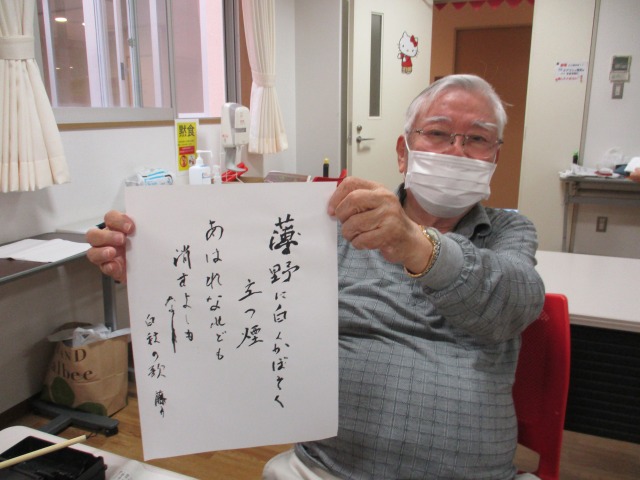 薄野に白くかぼそく
立つ煙
あはれなれども
消すよしも
なし
白秋の歌
黙食